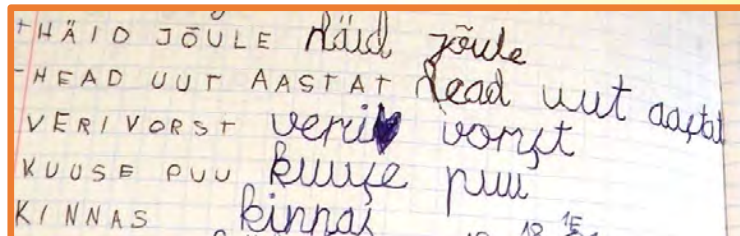 +HÄID JÕULE Häid jõule
-HEAD UUT AASTAT Head uut aastat
VERIVORST veri vorst
KUUSE PUU kuuse puu
KINNAS kinnas